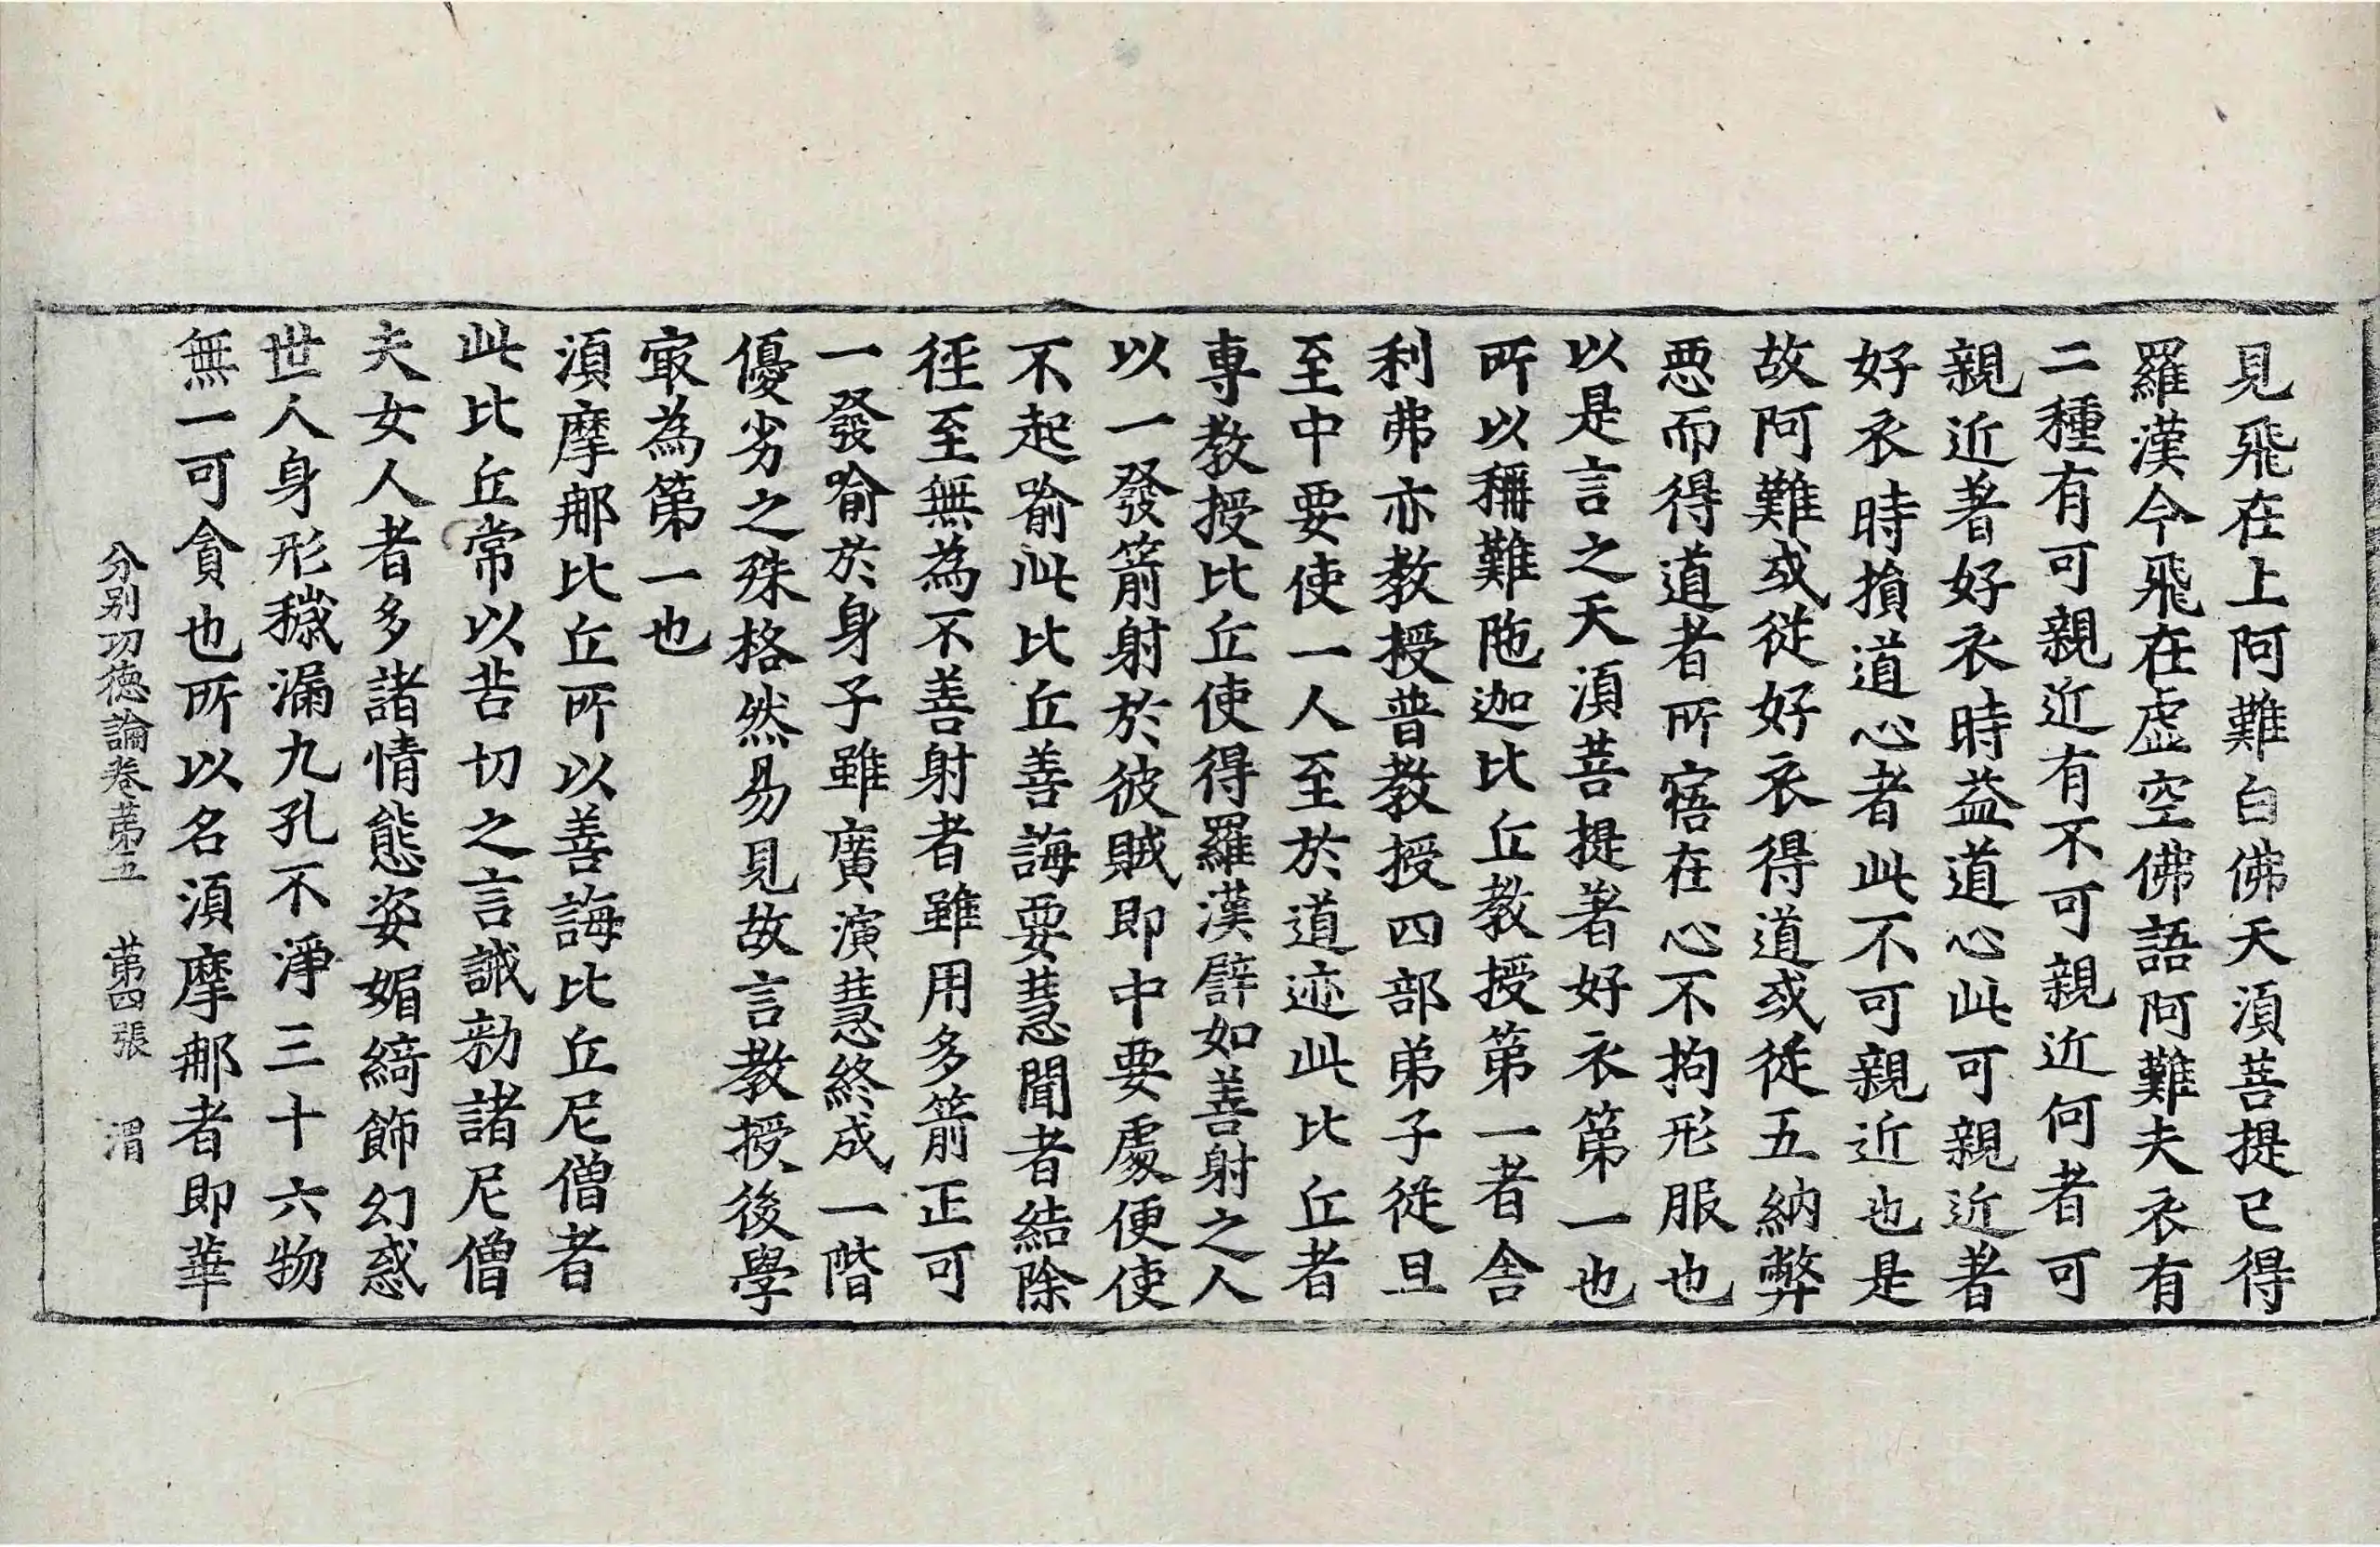 見飛在上阿難白佛天湏菩提已得
羅漢今飛在虛空佛語阿難夫衣有
二種有可親近有不可親近何者可
親近著好衣時益道心此可親近著
好衣時損道心者此不可親近也是
故阿難或從好衣得道或從五納弊
惡而得道者所寤在心不拘形服也
以是言之天湏菩提著好衣第一也
所以稱難陁迦比丘教授第一者舍
利弗亦教授普教授四部弟子從旦
至中要使一人至於道迹此比丘者
專教授比丘使得羅漢譬如善射之人
以一發箭射於彼賊即中要處便使
不起喻此比丘善誨要慧聞者結除
徑至無為不善射者雖用多箭正可
一發喻於身子雖廣演慧終成一階
優劣之殊格然易見故言教授後學
㝡為第一也
湏摩那比丘所以善誨比丘尼僧者
此比丘常以苦切之言誡勑諸尼僧
夫女人者多諸情態姿媚綺飾幻惑
世人身形穢漏九孔不淨三十六物
無一可貪也所以名湏摩那者即華
分别功德論卷苐五 苐四張 渭